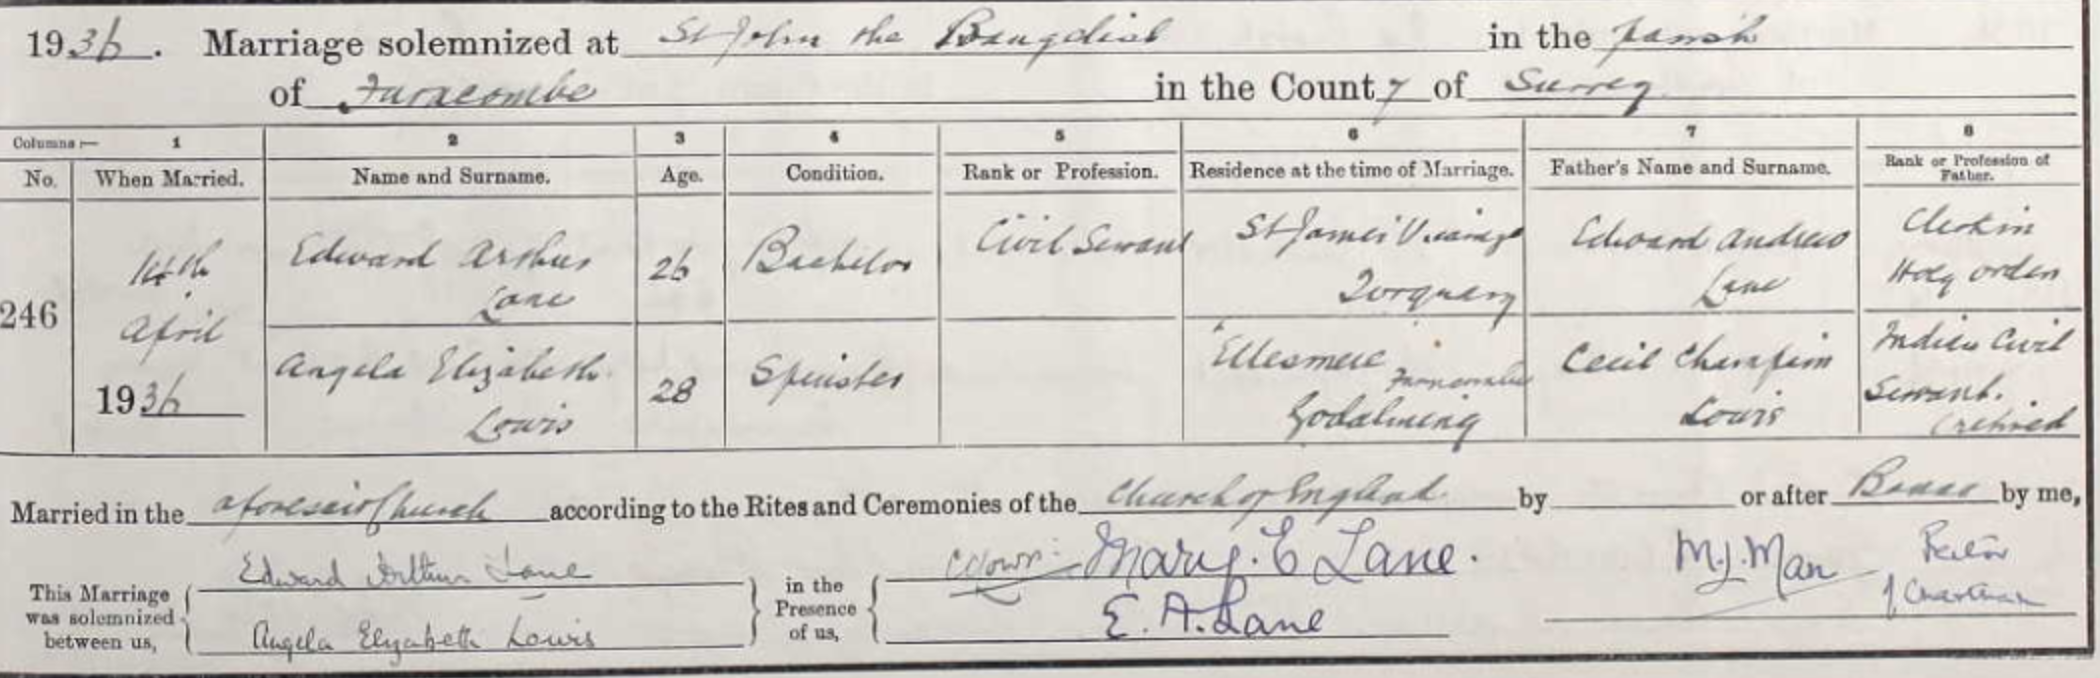 1936. Marriage solemnized at St John the Evangelist in the parish
of Farncombe in the County of Surrey
Columns:— 1 2 3 4 5 6 7 8
No. When Married. Name and Surname. Age. Condition. Rank or Profession. Residence at the time of Marriage. Father's Name and Surname. Rank or Profession of Father.
246
14th
April
1936
Edward Arthur
Lane
26
Bachelor
Civil Servant
St James Vicarage
Torquay
Edward Andrew
Lane
Clerk in
Holy orders
Angela Elizabeth
Lowis
28
Spinster
Ellesmere Farncombe
Godalming
Cecil Champain
Lowis
Indian Civil
Servant.
(retired
Married in the aforesaid Church according to the Rites and Ceremonies of the Church of England by or after Banns by me,
This Marriage was solemnized between us,
Edward Arthur Lane
Angela Elizabeth Lowis
in the Presence of us,
Mary. E Lane.
E. A. Lane
M.J. Man
Rector